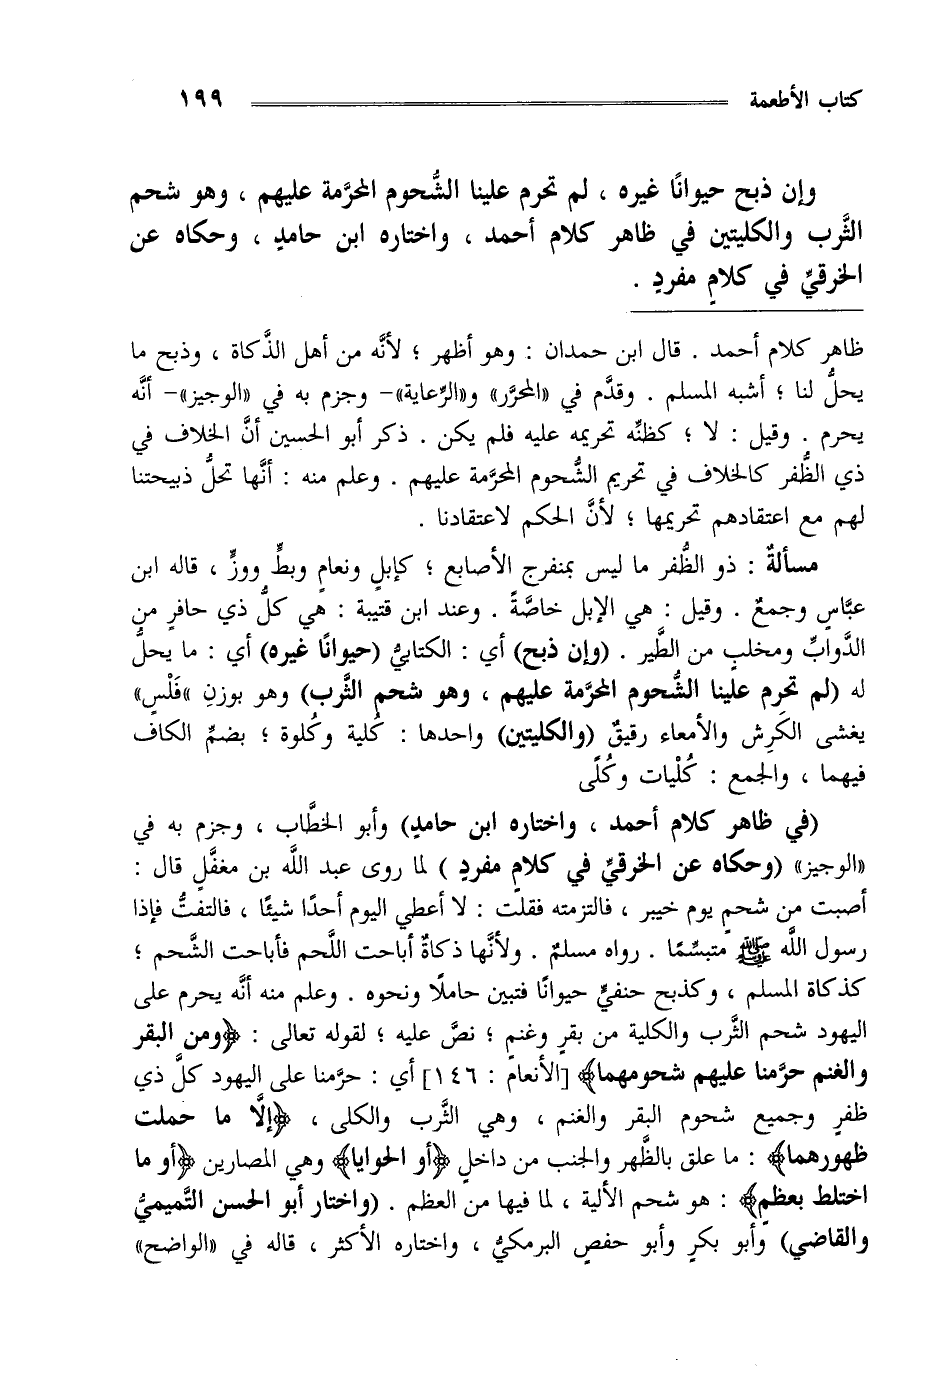 كتاب الأطعمة ١٩٩
وإن ذبح حيوانًا غيره ، لم تحرم علينا الشُّحوم المحرَّمة عليهم ، وهو شحم
الثَّرب والكليتين في ظاهر كلام أحمد ، واختاره ابن حامدٍ ، وحكاه عن
الخرقيِّ في كلامٍ مفردٍ .
ظاهر كلام أحمد . قال ابن حمدان : وهو أظهر ؛ لأنَّه من أهل الذَّكاة ، وذبح ما
يحلُّ لنا ؛ أشبه المسلم . وقدَّم في «المحرَّر» و«الرِّعاية»- وجزم به في «الوجيز»- أنَّه
يحرم . وقيل : لا ؛ كظنِّه تحريمه عليه فلم يكن . ذكر أبو الحسين أنَّ الخلاف في
ذي الظُّفر كالخلاف في تحريم الشُّحوم المحرَّمة عليهم . وعلم منه : أنَّها تحلُّ ذبيحتنا
لهم مع اعتقادهم تحريمها ؛ لأنَّ الحكم لاعتقادنا .
مسألةٌ : ذو الظُّفر ما ليس بمنفرج الأصابع ؛ كإبلٍ ونعامٍ وبطٍّ ووزٍّ ، قاله ابن
عبَّاسٍ وجمعٌ . وقيل : هي الإبل خاصَّةً . وعند ابن قتيبة : هي كلُّ ذي حافرٍ من
الدَّوابِّ ومخلبٍ من الطَّير . (وإن ذبح) أي : الكتابيُّ (حيوانًا غيره) أي : ما يحلُّ
له (لم تحرم علينا الشُّحوم المحرَّمة عليهم ، وهو شحم الثَّرب) وهو بوزنِ «فَلْسٍ»
يغشى الكَرِش والأمعاء رقيقٌ (والكليتين) واحدها : كُلية وكُلوة ؛ بضمِّ الكاف
فيهما ، والجمع : كُلْيات وكُلًى
(في ظاهر كلام أحمد ، واختاره ابن حامدٍ) وأبو الخطَّاب ، وجزم به في
«الوجيز» (وحكاه عن الخرقيِّ في كلامٍ مفردٍ ) لما روى عبد اللَّه بن مغفَّلٍ قال :
أصبت من شحمٍ يوم خيبر ، فالتزمته فقلت : لا أعطي اليوم أحدًا شيئًا ، فالتفتُّ فإذا
رسول اللَّه ﷺ متبسِّمًا . رواه مسلمٌ . ولأنَّها ذكاةٌ أباحت اللَّحم فأباحت الشَّحم ؛
كذكاة المسلم ، وكذبح حنفيٍّ حيوانًا فتبين حاملًا ونحوه . وعلم منه أنَّه يحرم على
اليهود شحم الثَّرب والكلية من بقرٍ وغنمٍ ؛ نصَّ عليه ؛ لقوله تعالى : ﴿ومن البقر
والغنم حرَّمنا عليهم شحومهما﴾ [الأنعام : ١٤٦] أي : حرَّمنا على اليهود كلَّ ذي
ظفرٍ وجميع شحوم البقر والغنم ، وهي الثَّرب والكلى ، ﴿إلَّا ما حملت
ظهورهما﴾ : ما علق بالظَّهر والجنب من داخلٍ ﴿أو الحوايا﴾ وهي المصارين ﴿أو ما
اختلط بعظمٍ﴾ : هو شحم الألية ، لما فيها من العظم . (واختار أبو الحسن التَّميميُّ
والقاضي) وأبو بكرٍ وأبو حفصٍ البرمكيُّ ، واختاره الأكثر ، قاله في «الواضح»